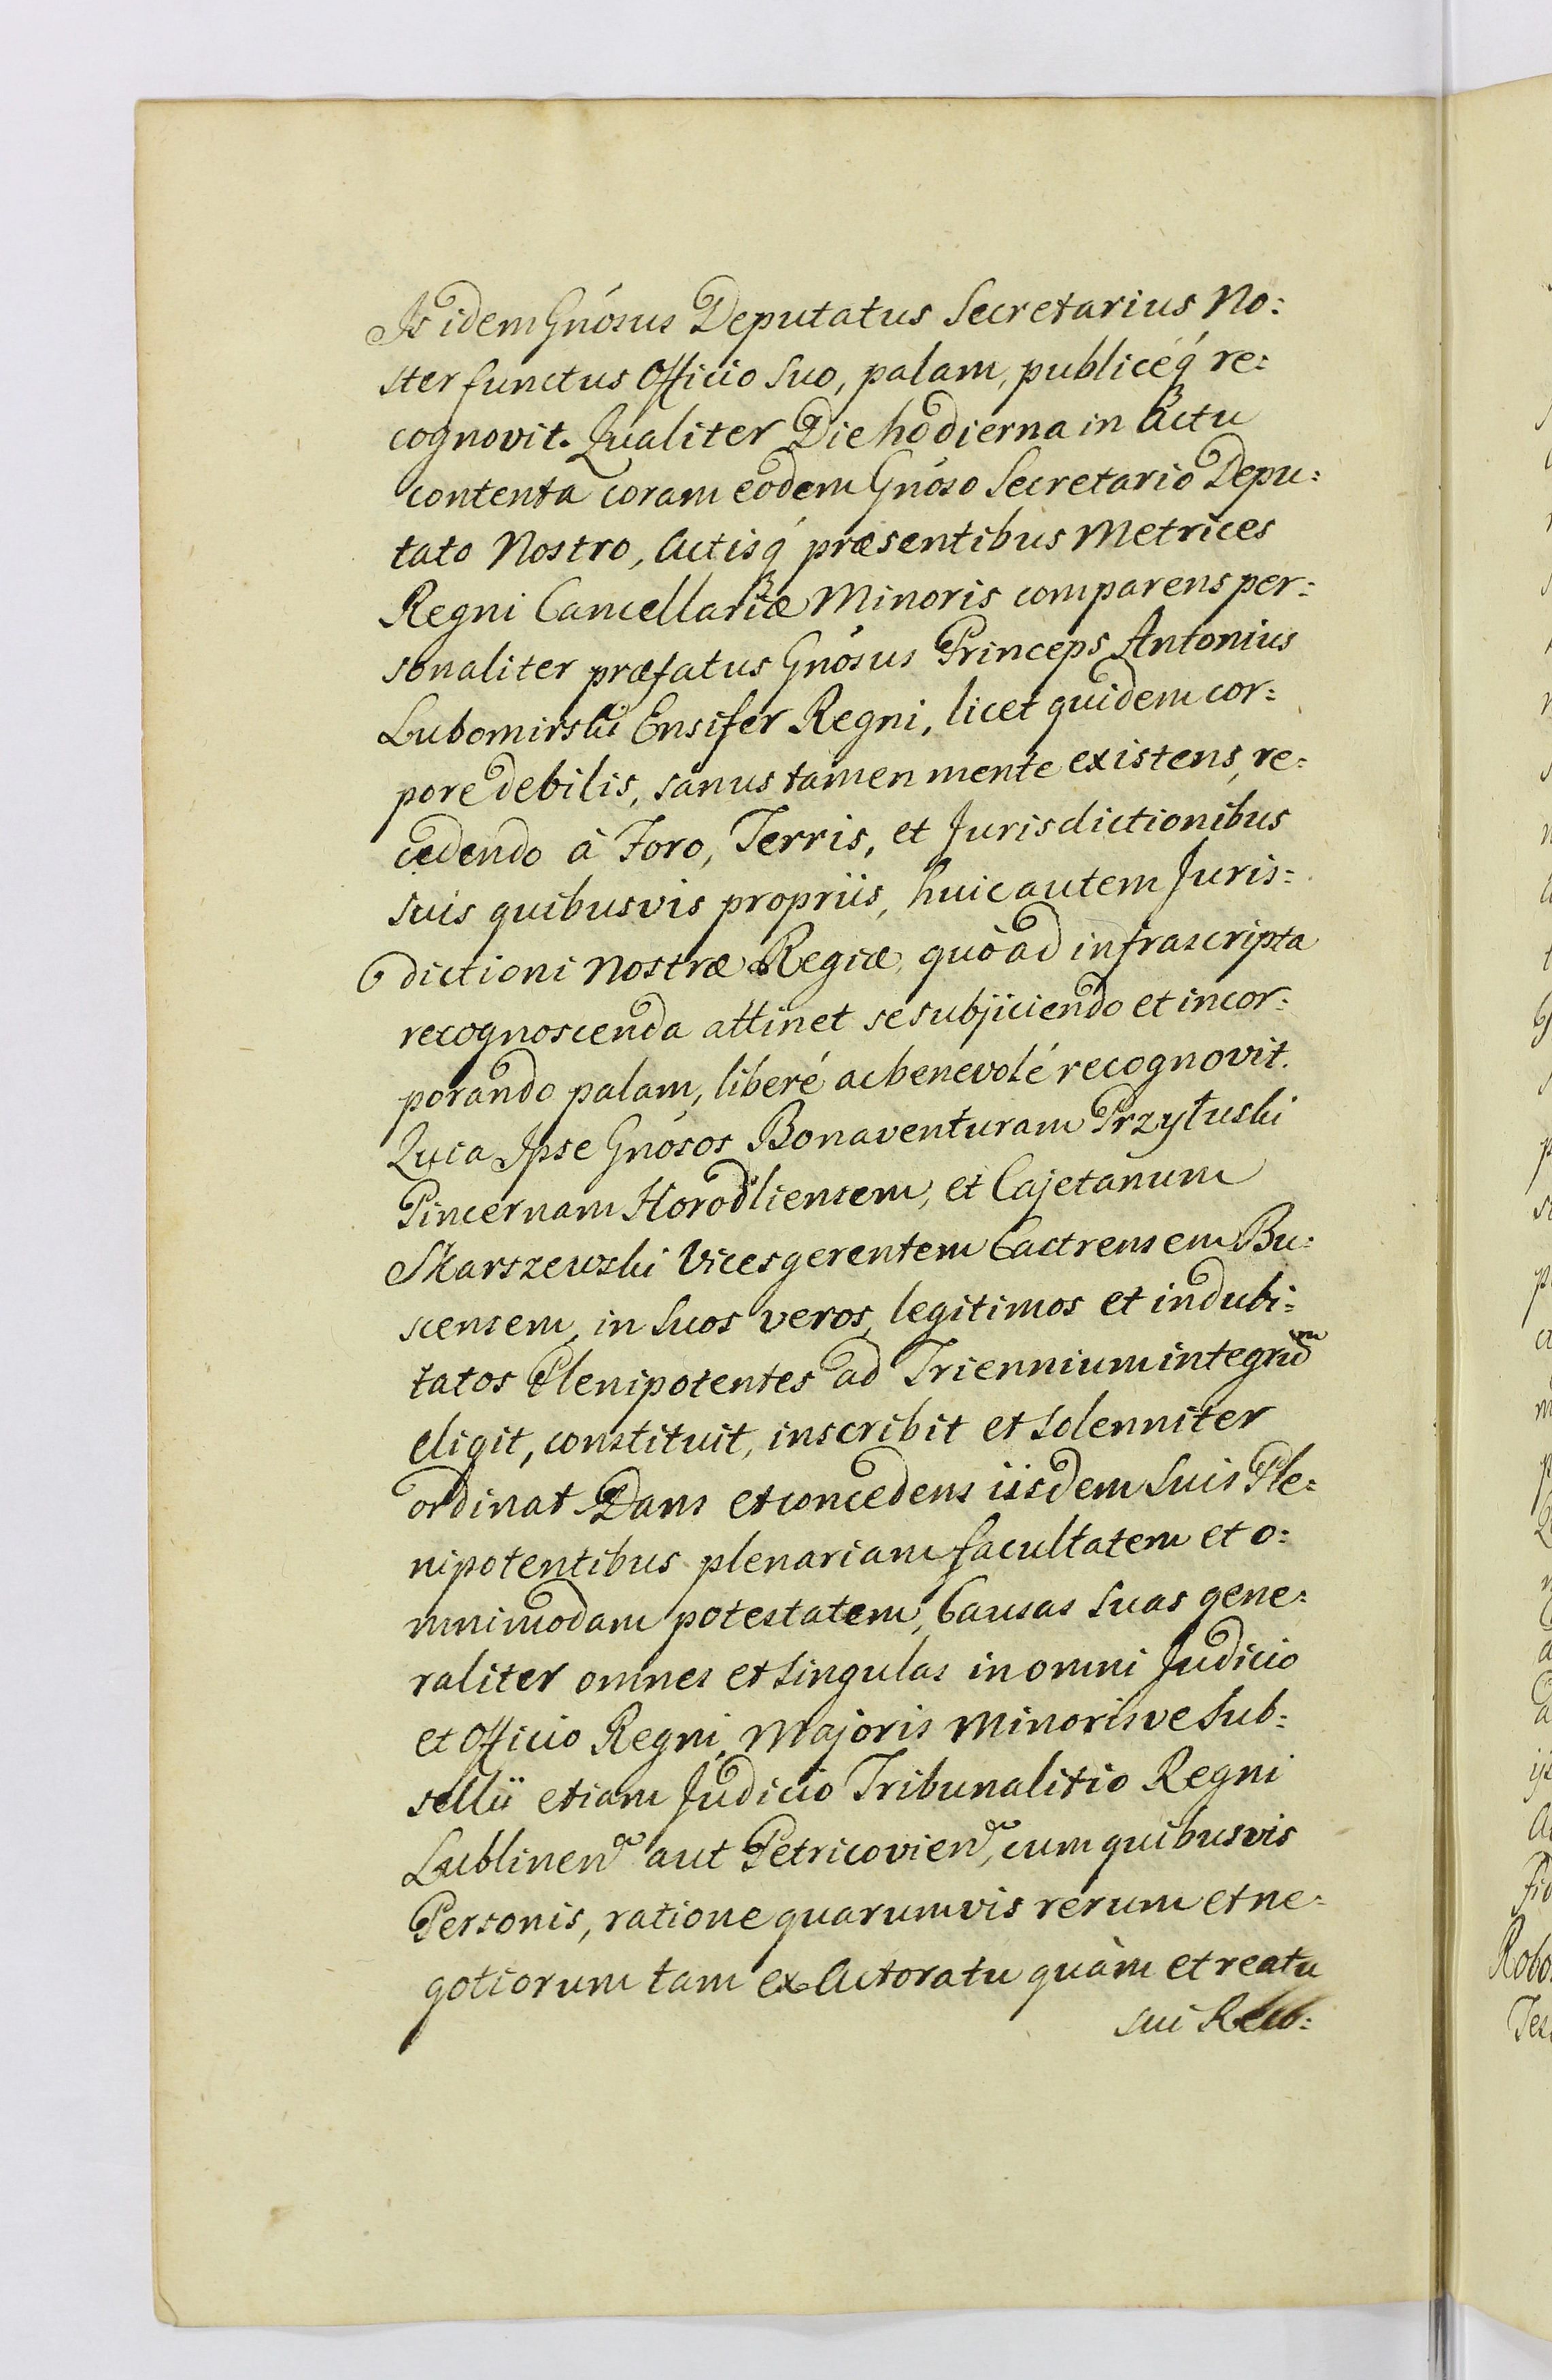 Is idem Gnósus Deputatus Secretarius No:
ster functus Officio Suo, palam, publicéq́ re:
cognovit. Qualiter Die hodierna in Actu
contenta coram eodem Gnóso Secretario Depu:
tato Nostro, Actisq́ præsentibus Metrices
Regni Cancellariæ Minoris comparens per:
sonaliter præfatus Gnósus Princeps Antonius
Lubomirski Ensifer Regni, licet quidem cor:
pore debilis, sanus tamen mente existens, re:
cedendo à Foro, Terris, et Jurisdictionibus
suis quibusvis propriis, huic autem Juris:
dictioni Nostræ Regiæ, quò ad infrascripta
recognoscenda attinet se subjiciendo et incor:
porando palam, liberé ac benevolé recognovit.
Quia Ipse Gnósos Bonaventuram Przyłuski
Pincernam Horodliensem, et Cajetanum
Skarszewski Vicesgerentem Castrensem Bu:
scensem, in Suos veros, legitimos et indubi:
tatos Plenipotentes ad Triennium integrum
eligit, constituit, inscribit et Solenniter
ordinat. Dans et concedens iisdem Suis Ple:
nipotentibus plenariam facultatem et o:
mnimodam potestatem, Causas Suas gene:
raliter omnes et Singulas in omni Judicio
et Officio Regni, Majoris Minorisve Sub:
sellii etiam Judicio Tribunalitio Regni
Lublinen͠ aut Petricovien͠, cum quibusvis
Personis, ratione quarumvis rerum et ne:
gotiorum tam ex Actoratu quàm et reatu
sui